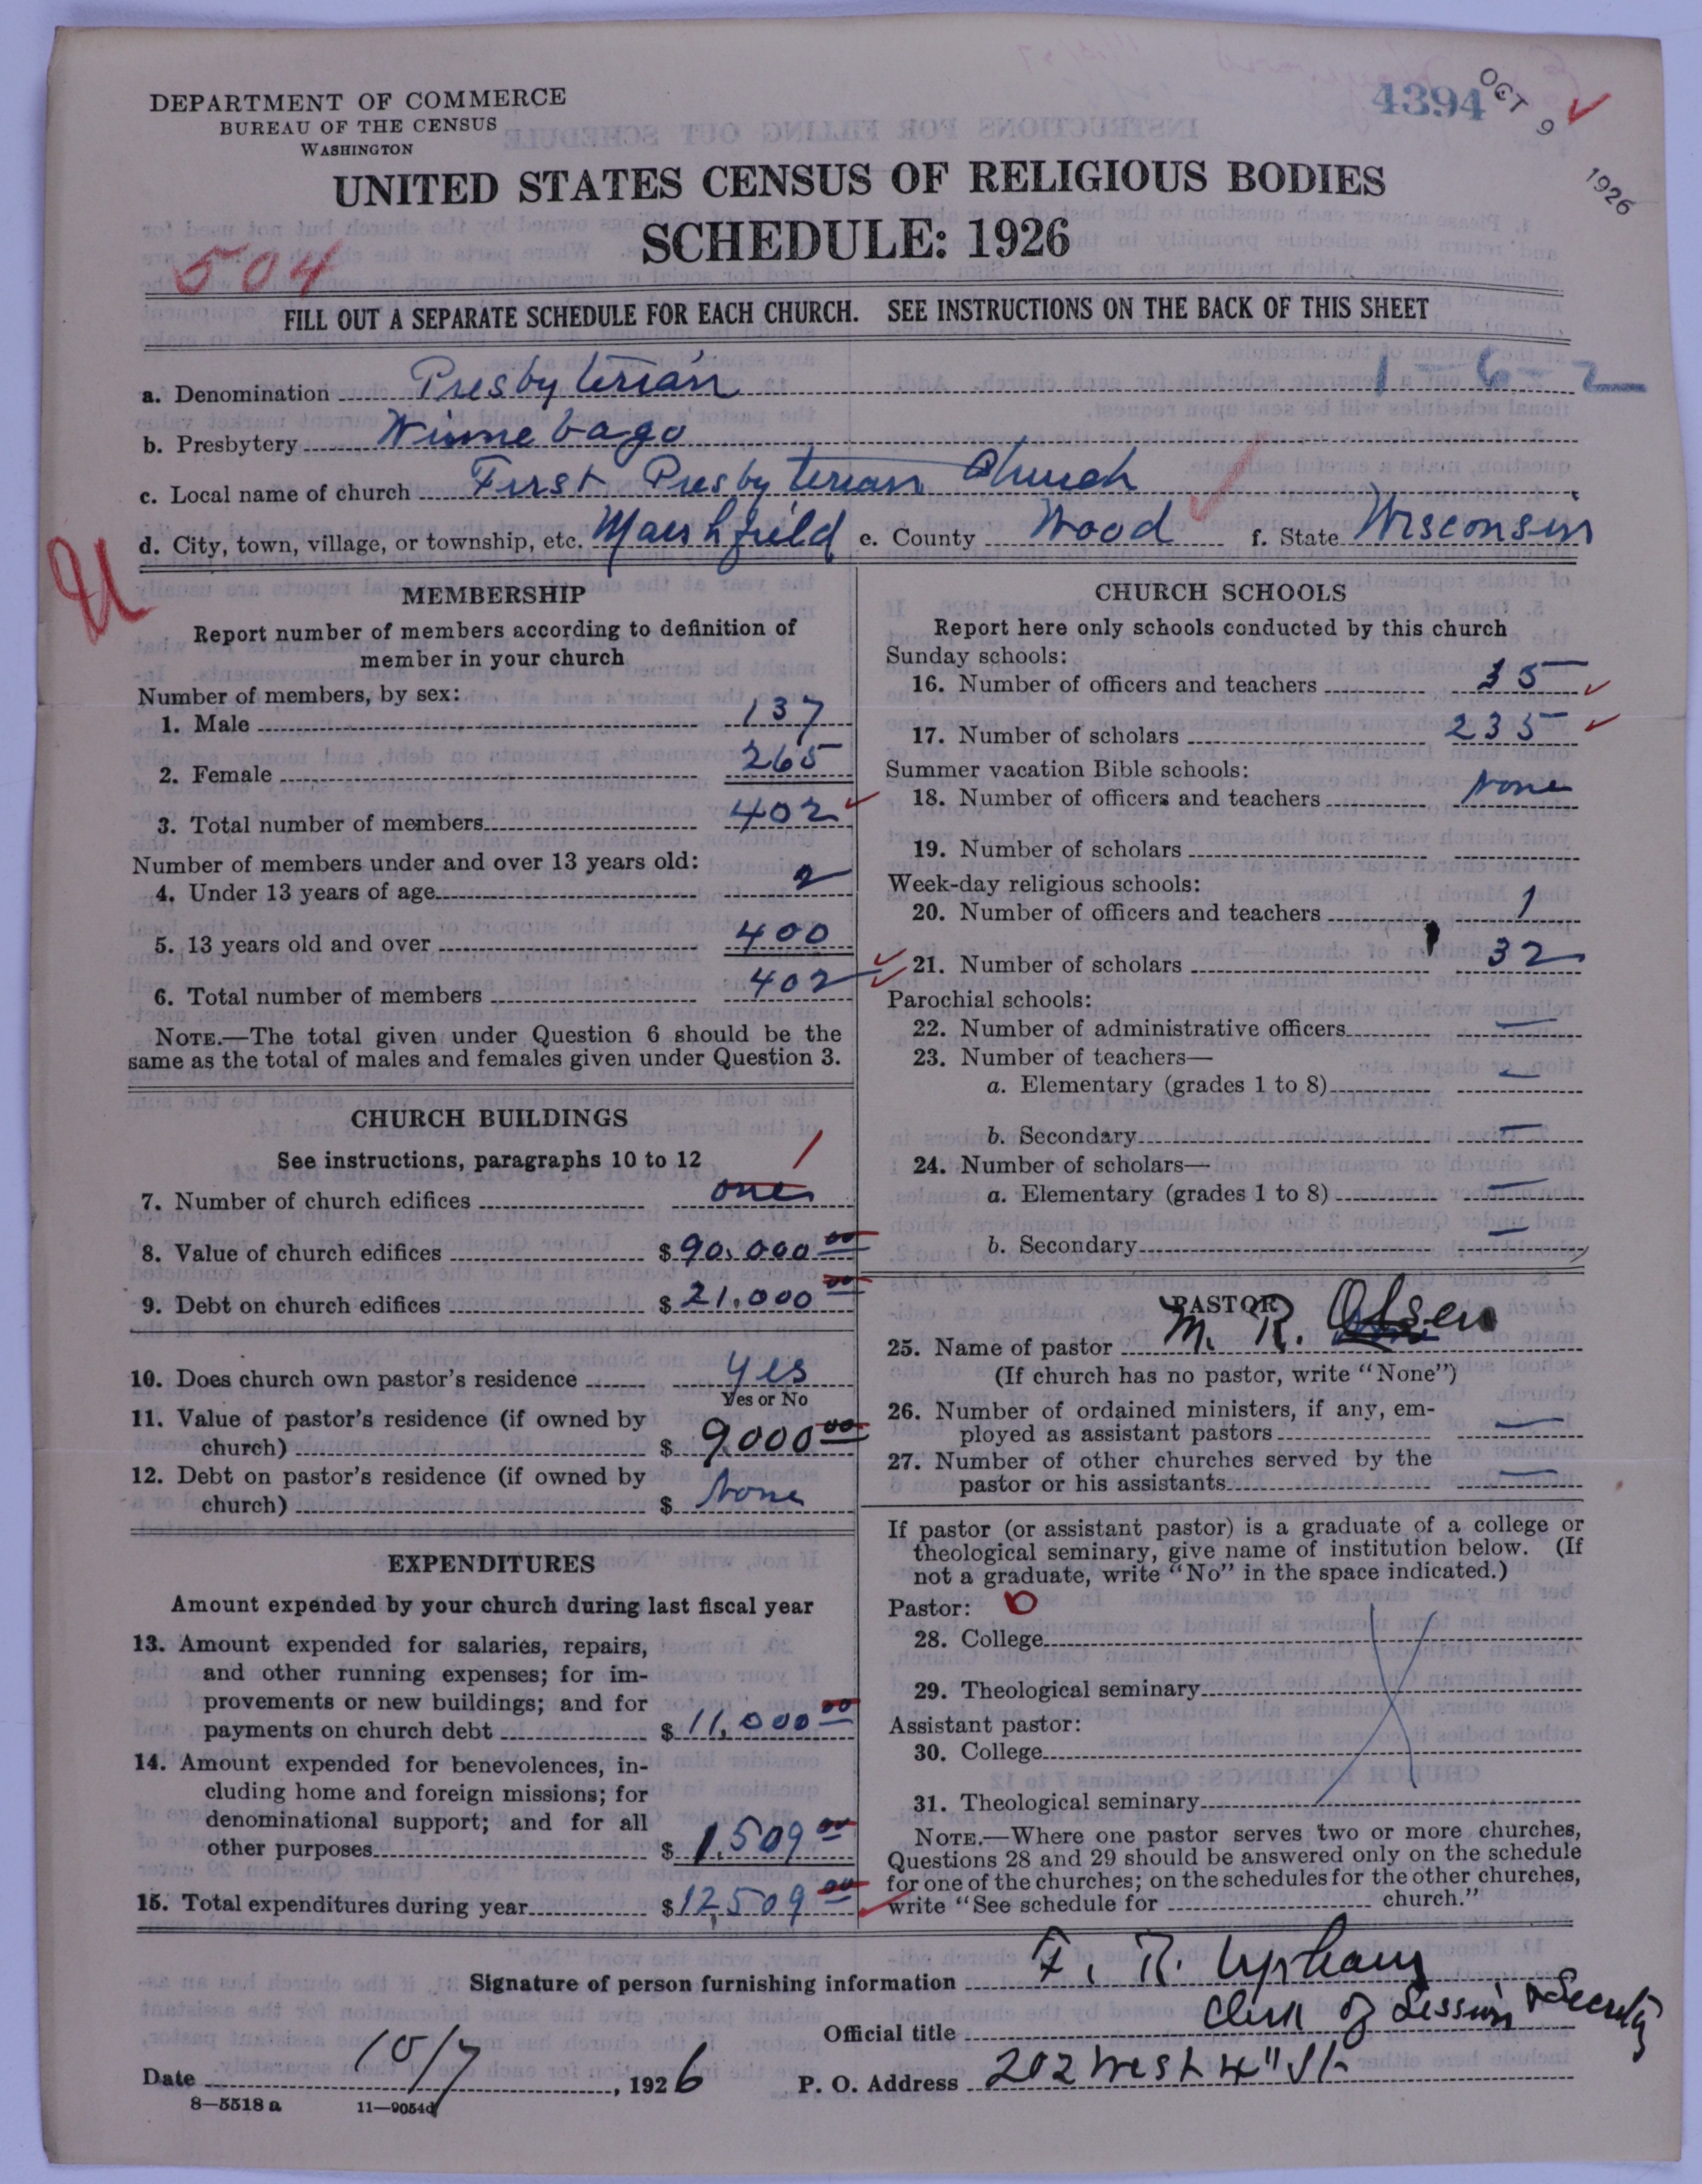 4394
OCT 9 1926
DEPARTMENT OF COMMERCE
BUREAU OF THE CENSUS
WASHINGTON
UNITED STATES CENSUS OF RELIGIOUS BODIES
SCHEDULE: 1926
504
FILL OUT A SEPARATE SCHEDULE FOR EACH CHURCH. SEE INSTRUCTIONS ON THE BACK OF THIS SHEET
1-6-2
a. Denomination Presbyterian
b. Presbytery Winnebago
c. Local name of church First Presbyterian Church
d. City, town, village, or township, etc. Marshfield e. County Wood f. State Wisconsin
U
MEMBERSHIP
Report number of members according to definition of
member in your church
Number of members, by sex:
1. Male 137
2. Female 265
3. Total number of members 402
Number of members under and over 13 years old:
4. Under 13 years of age 2
5. 13 years old and over 400
6. Total number of members 402
NOTE.—The total given under Question 6 should be the
same as the total of males and females given under Question 3.
CHURCH BUILDINGS
See instructions, paragraphs 10 to 12
1
7. Number of church edifices one
8. Value of church edifices $90,000 00
9. Debt on church edifices $21,000 00
10. Does church own pastor's residence Yes
Yes or No
11. Value of pastor's residence (if owned by
church) $ 9000 00
12. Debt on pastor's residence (if owned by
church) $ None
EXPENDITURES
Amount expended by your church during last fiscal year
13. Amount expended for salaries, repairs,
and other running expenses; for im-
provements or new buildings; and for
payments on church debt $11,000 00
14. Amount expended for benevolences, in-
cluding home and foreign missions; for
denominational support; and for all
other purposes $ 1,509 00
15. Total expenditures during year $12,509 00
CHURCH SCHOOLS
Report here only schools conducted by this church
Sunday schools:
16. Number of officers and teachers 35
17. Number of scholars 235
Summer vacation Bible schools:
18. Number of officers and teachers None
19. Number of scholars
Week-day religious schools:
20. Number of officers and teachers 1
21. Number of scholars 32
Parochial schools:
22. Number of administrative officers —
23. Number of teachers—
a. Elementary (grades 1 to 8) —
b. Secondary —
24. Number of scholars—
a. Elementary (grades 1 to 8) —
b. Secondary —
PASTOR
25. Name of pastor M. R. Olsen
(If church has no pastor, write "None")
26. Number of ordained ministers, if any, em-
ployed as assistant pastors —
27. Number of other churches served by the
pastor or his assistants —
If pastor (or assistant pastor) is a graduate of a college or
theological seminary, give name of institution below. (If
not a graduate, write "No" in the space indicated.)
Pastor: 0
28. College
29. Theological seminary
Assistant pastor:
30. College
31. Theological seminary
NOTE.—Where one pastor serves two or more churches,
Questions 28 and 29 should be answered only on the schedule
for one of the churches; on the schedules for the other churches,
write "See schedule for church."
Signature of person furnishing information F. R. Upham
Official title Clerk of Session & Secretry
Date 10/7, 1926 P. O. Address 202 West 4" St
8—5518 a 11—9054d